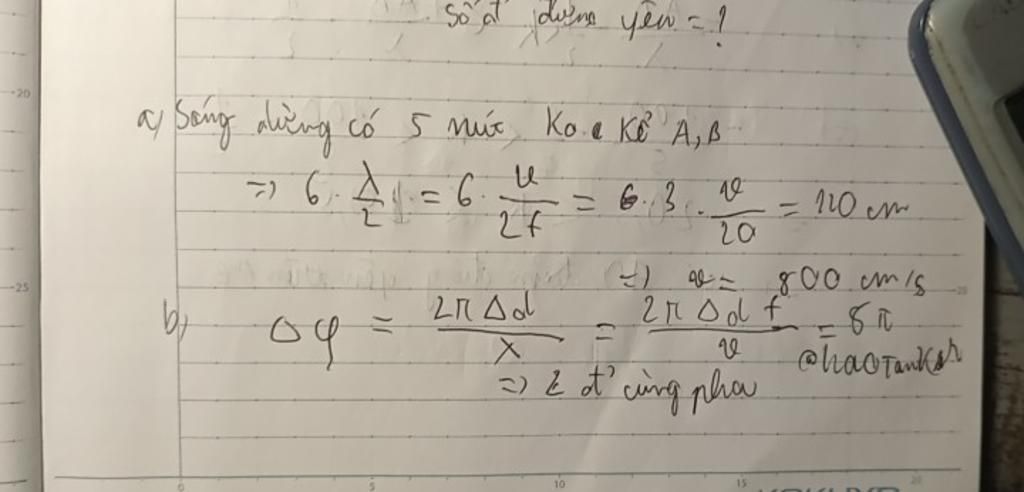 Số đ' đứng yên = ?
a) Sóng dừng có 5 nút, Ko kể A, B
=> 6 · λ/2 = 6 · v/2f = 6 · 3 · v/20 = 120 cm
=> v = 800 cm/s
b) Δφ = 2π Δd / λ = 2π Δd f / v = 8π
@haoTanksh
=> 2 đ' cùng pha
20
25
0 5 10 15 20